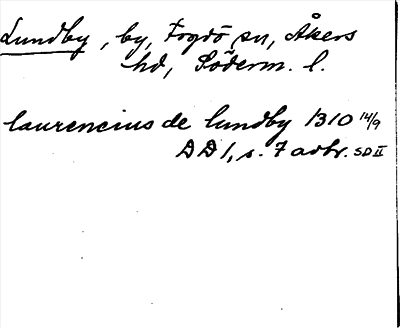 Lundby, by, Fogdö sn, Åkers
hd, Söderm. l.
laurencius de lundby 1310 14/9
DD 1, s. 7 avskr. SD II